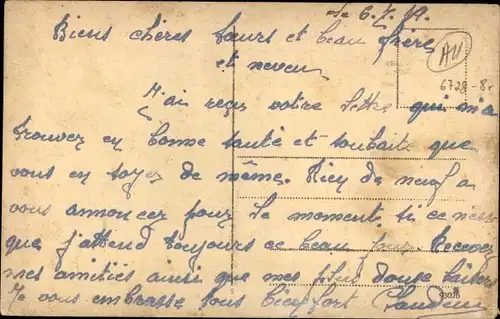 le 6.7.19.
Biens chères Sœurs et beau frère
et neveu
AU
6729-8.
J'ai reçu votre lettre qui m'a
trouver en bonne santé et souhaite que
vous en soyez de même. Rien de neuf a
vous annoncer pour le moment si ce n'est
que j'attend toujours ce beau jour. Recevez
mes amitiés ainsi que mes plus doux baisers
Je vous embrasse tous bien fort